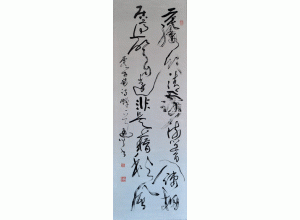 垂緌飲清露流響出疏桐
居高聲自遠非是藉秋風
虞世南詩蟬